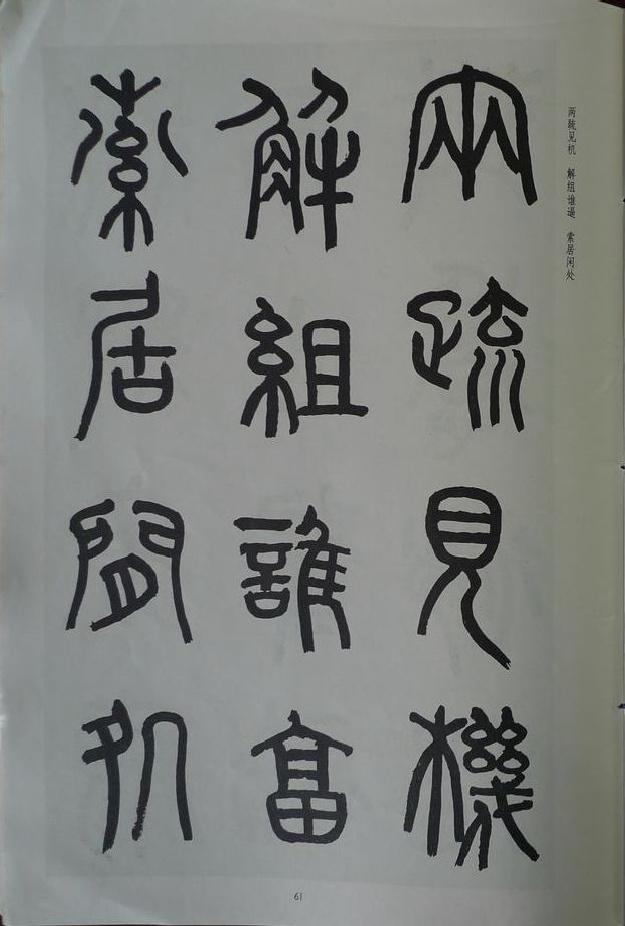 两疏见机　解组谁逼　索居闲处
兩疏見機
解組誰畐
索居閒処
61